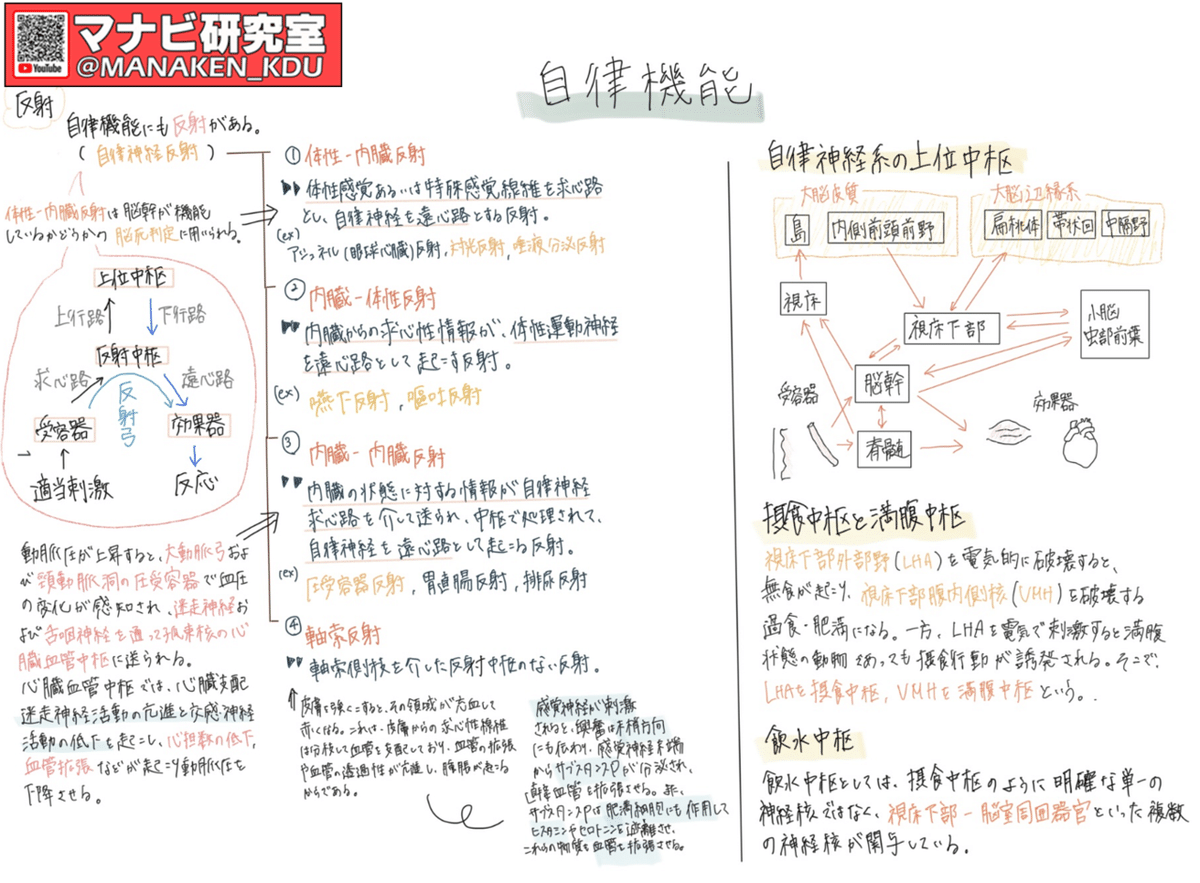 マナビ研究室
YouTube
@MANAKEN_KDU
自律機能
反射
自律機能にも反射がある。
(自律神経反射)
体性-内臓反射は脳幹が機能
しているかどうかの脳死判定に用いられる。
上位中枢
上行路
下行路
反射中枢
求心路
遠心路
反射弓
受容器
効果器
適当刺激
反応
動脈圧が上昇すると、大動脈弓およ
び頸動脈洞の圧受容器で血圧
の変化が感知され、迷走神経お
よび舌咽神経を通って孤束核の心
臓血管中枢に送られる。
心臓血管中枢では、心臓支配
迷走神経活動の亢進と交感神経
活動の低下を起こし、心拍数の低下、
血管拡張などが起こり動脈圧を
下降させる。
① 体性-内臓反射
体性感覚あるいは特殊感覚線維を求心路
とし、自律神経を遠心路とする反射。
(ex)
アシュネル(眼球心臓)反射, 対光反射, 唾液分泌反射
② 内臓-体性反射
内臓からの求心性情報が、体性運動神経
を遠心路として起こす反射。
(ex) 嚥下反射, 嘔吐反射
③ 内臓-内臓反射
内臓の状態に対する情報が自律神経
求心路を介して送られ、中枢で処理されて、
自律神経を遠心路として起こる反射。
(ex)
圧受容器反射, 胃直腸反射, 排尿反射
④ 軸索反射
軸索側枝を介した反射中枢のない反射。
皮膚を強くこすると、その領域が充血して
赤くなる。これは、皮膚からの求心性線維
は分枝して血管を支配しており、血管の拡張
や血管の透過性が亢進し、腫脹が起こる
からである。
感覚神経が刺激
されると、興奮は末梢方向
にも伝わり、感覚神経末端
からサブスタンスPが分泌され、
直接血管を拡張させる。また、
サブスタンスPは肥満細胞にも作用して
ヒスタミンやセロトニンを遊離させ、
これらの物質も血管を拡張させる。
自律神経系の上位中枢
大脳皮質
大脳辺縁系
島
内側前頭前野
扁桃体
帯状回
中隔野
視床
視床下部
小脳
虫部前葉
脳幹
受容器
効果器
脊髄
摂食中枢と満腹中枢
視床下部外部野(LHA)を電気的に破壊すると、
無食が起こり、視床下部腹内側核(VMH)を破壊する
過食・肥満になる。一方、LHAを電気で刺激すると満腹
状態の動物であっても摂食行動が誘発される。そこで、
LHAを摂食中枢, VMHを満腹中枢という。
飲水中枢
飲水中枢としては、摂食中枢のように明確な単一の
神経核ではなく、視床下部-脳室周囲器官といった複数
の神経核が関与している。